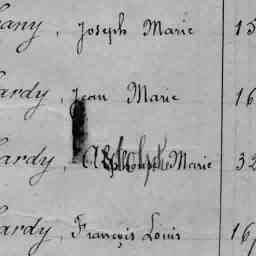 any, Joseph Marie 15
ardy, Jean Marie 16
ardy, Marie 32
ardy, François Louis 16